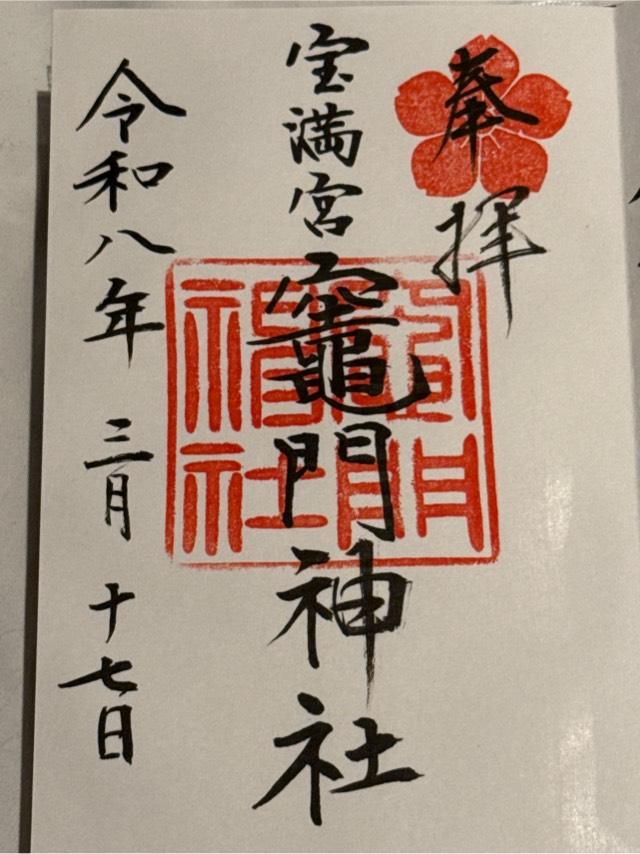 奉拝
宝満宮竈門神社
竈門神社
令和八年三月十七日